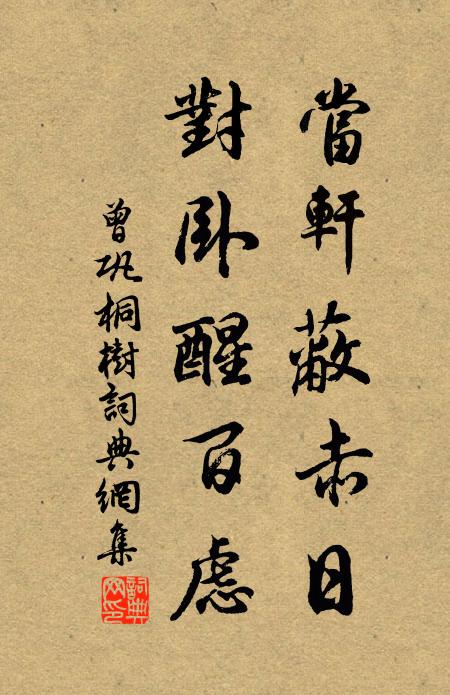 當軒蔽赤日
對卧醒百慮
曾巩桐樹詞典網集
詞典網印